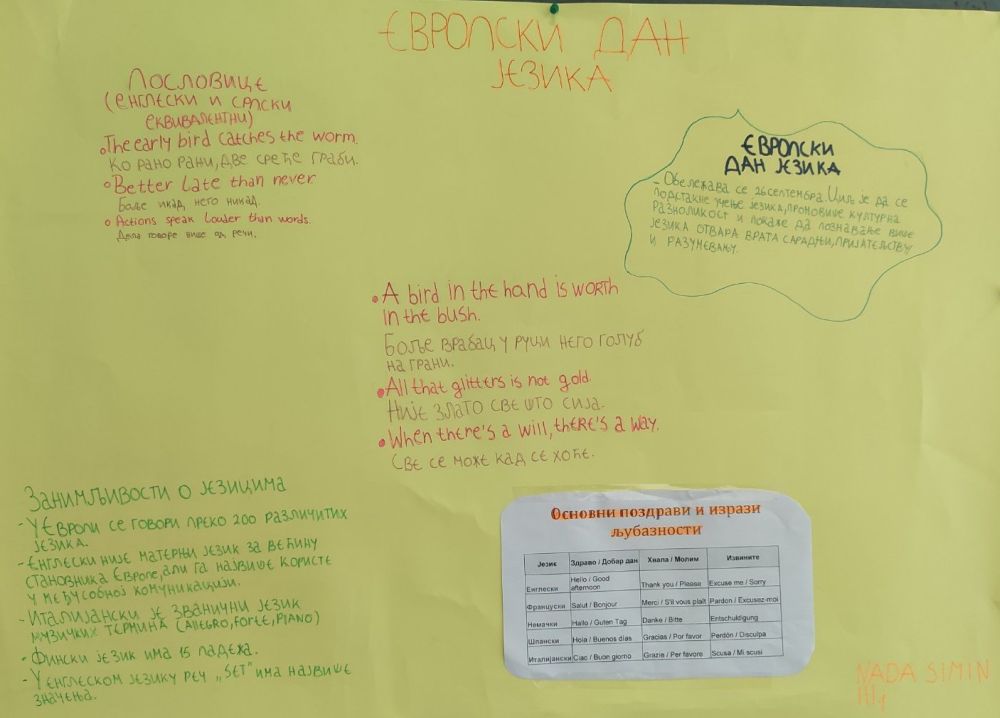 ЕВРОПСКИ ДАН
ЈЕЗИКА
Пословице
(енглески и српски
еквивалентни)
The early bird catches the worm.
Ко рано рани, две среће граби.
Better Late than never
Боље икад него никад.
Actions speak louder than words.
Дела говоре више од речи.
ЕВРОПСКИ
ДАН ЈЕЗИКА
- Обележава се 26 септембра. Циљ је да се
подстакне учење језика, промовише културна
разноликост и покаже да познавање више
језика отвара врата сарадњи, пријатељству
и разумевању.
A bird in the hand is worth
in the bush.
Боље врабац у руци него голуб
на грани.
All that glitters is not gold.
Није злато све што сија.
When there's a will, there's a way.
Све се може кад се хоће.
Занимљивости о језицима
- У Европи се говори преко 200 различитих
језика.
- Енглески није матерњи језик за већину
становника Европе, али га највише користе
у међусобној комуникацији.
- Италијански је званични језик
музичких термина (allegro, forte, piano)
- Фински језик има 15 падежа.
- У енглеском језику реч „SET" има највише
значења.
Основни поздрави и изрази
љубазности
Језик Здраво / Добар дан Хвала / Молим Извините
Енглески Hello / Good afternoon Thank you / Please Excuse me / Sorry
Француски Salut / Bonjour Merci / S'il vous plaît Pardon / Excusez-moi
Немачки Hallo / Guten Tag Danke / Bitte Entschuldigung
Шпански Hola / Buenos días Gracias / Por favor Perdón / Disculpa
Италијански Ciao / Buon giorno Grazie / Per favore Scusa / Mi scusi
NADA SIMIN
III4